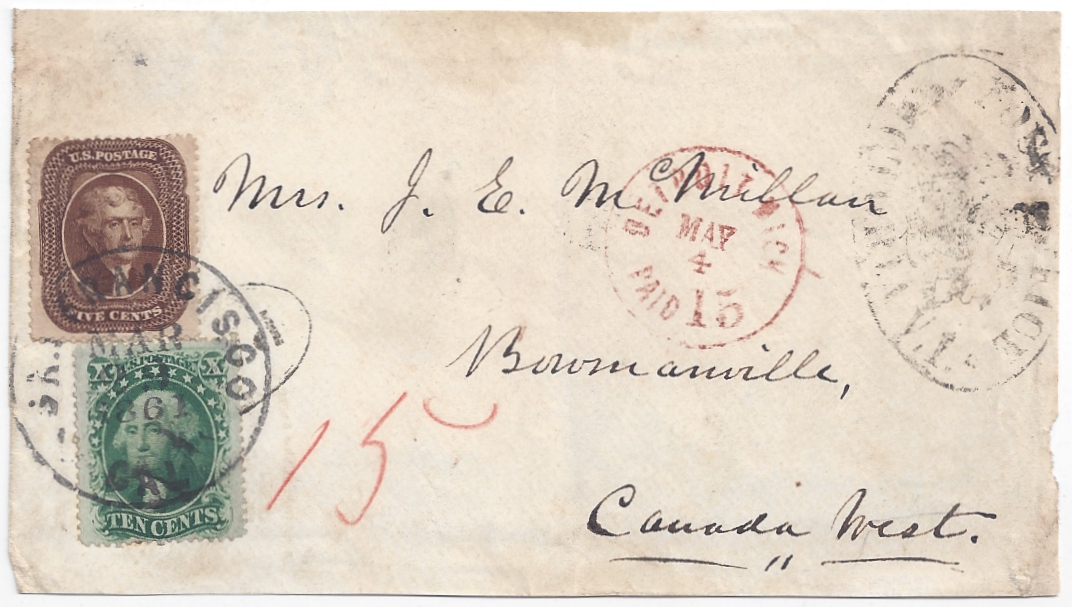 U.S. POSTAGE
FIVE CENTS
SAN FRANCISCO
MAR
1861
CAL.
U.S. POSTAGE
X
TEN CENTS
Mrs. J. E. McMillan
DETROIT MICH
MAY
4
PAID 15
Bowmanville,
15
Canada West.